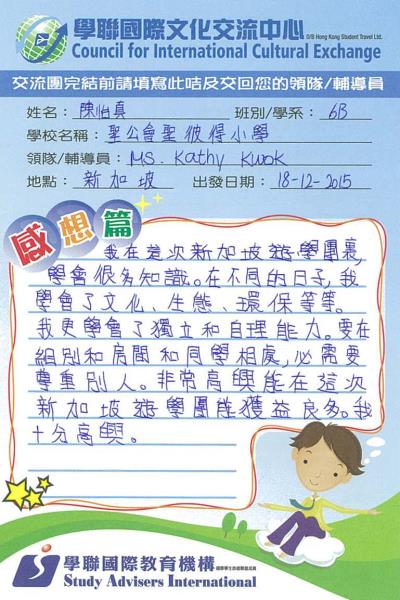 學聯國際文化交流中心
O/B Hong Kong Student Travel Ltd.
Council for International Cultural Exchange
交流團完結前請填寫此咭及交回您的領隊/輔導員
姓名：陳怡真 班別/學系：6B
學校名稱：聖公會聖彼得小學
領隊/輔導員：Ms. Kathy Kwok
地點：新加坡 出發日期：18-12-2015
感想篇
我在這次新加坡遊學團裏，
學會很多知識。在不同的日子，我
學會了文化、生態、環保等等。
我更學會了獨立和自理能力。要在
組別和房間和同學相處，必需要
尊重別人。非常高興能在這次
新加坡遊學團能獲益良多。我
十分高興。
學聯國際教育機構
Study Advisers International